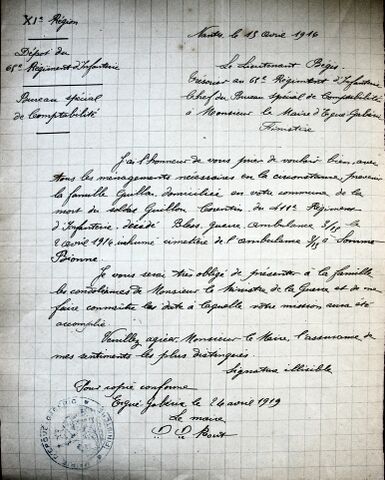 XIe Région
Nantes, le 15 avril 1916
Dépôt du
65e Régiment d'Infanterie
Bureau spécial
de Comptabilité
Le Lieutenant
Trésorier au 65e Régiment d'Infanterie
Chef du Bureau spécial de Comptabilité
à Monsieur le Maire d'Ergué-Gabéric
Finistère
J'ai l'honneur de vous prier de vouloir bien, avec
tous les ménagements nécessaires en la circonstance, prévenir
la famille domiciliée en votre commune de la
mort du soldat Guillou Corentin, du Régiment
d'Infanterie, décédé Bless. guerre ambulance 5/15 le
2 avril 1916 inhumé cimetière de l'ambulance 5/15 à Somme
Bionne.
Je vous serai très obligé de présenter à la famille
les condoléances de Monsieur le Ministre de la Guerre et de me
faire connaître la date à laquelle votre mission aura été
accomplie.
Veuillez agréer, Monsieur le Maire, l'assurance de
mes sentiments les plus distingués.
Signature illisible
Pour copie conforme
Ergué-Gabéric le 24 avril 1919
Le maire